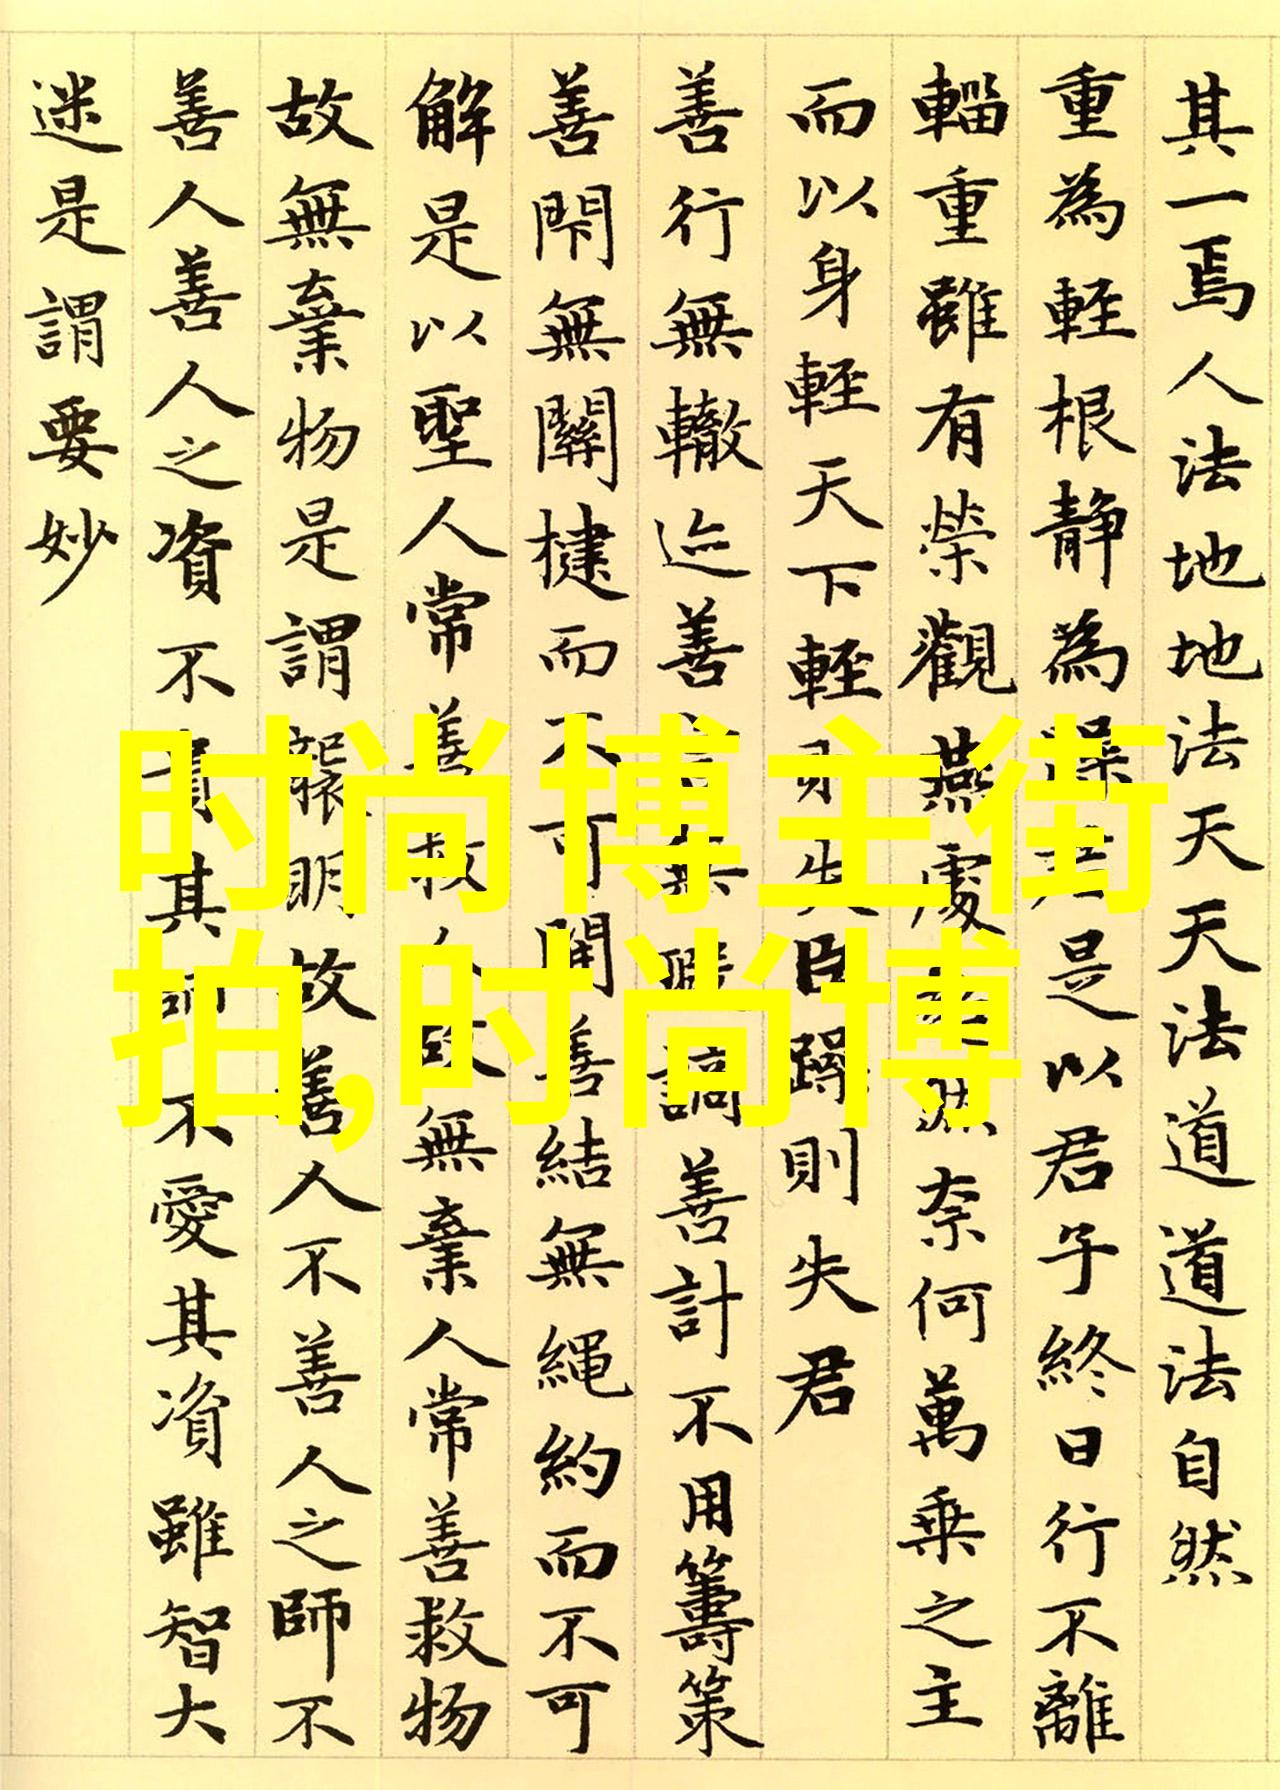 其一焉人法地地法天天法道道法自然
重為輕根静為躁君是以君子終日行不離
輜重雖有榮觀燕處超然奈何萬乗之主
而以身輕天下輕則失臣躁則失君
善行無轍迹善言無瑕謫善計不用籌策
善閇無關楗而不可開善結無繩約而不可
解是以聖人常善救人故無棄人常善救物
故無棄物是謂襲明故善人不善人之師不
善人善人之資不貴其師不愛其資雖智大
迷是謂要妙
时尚博主街
拍,时尚博